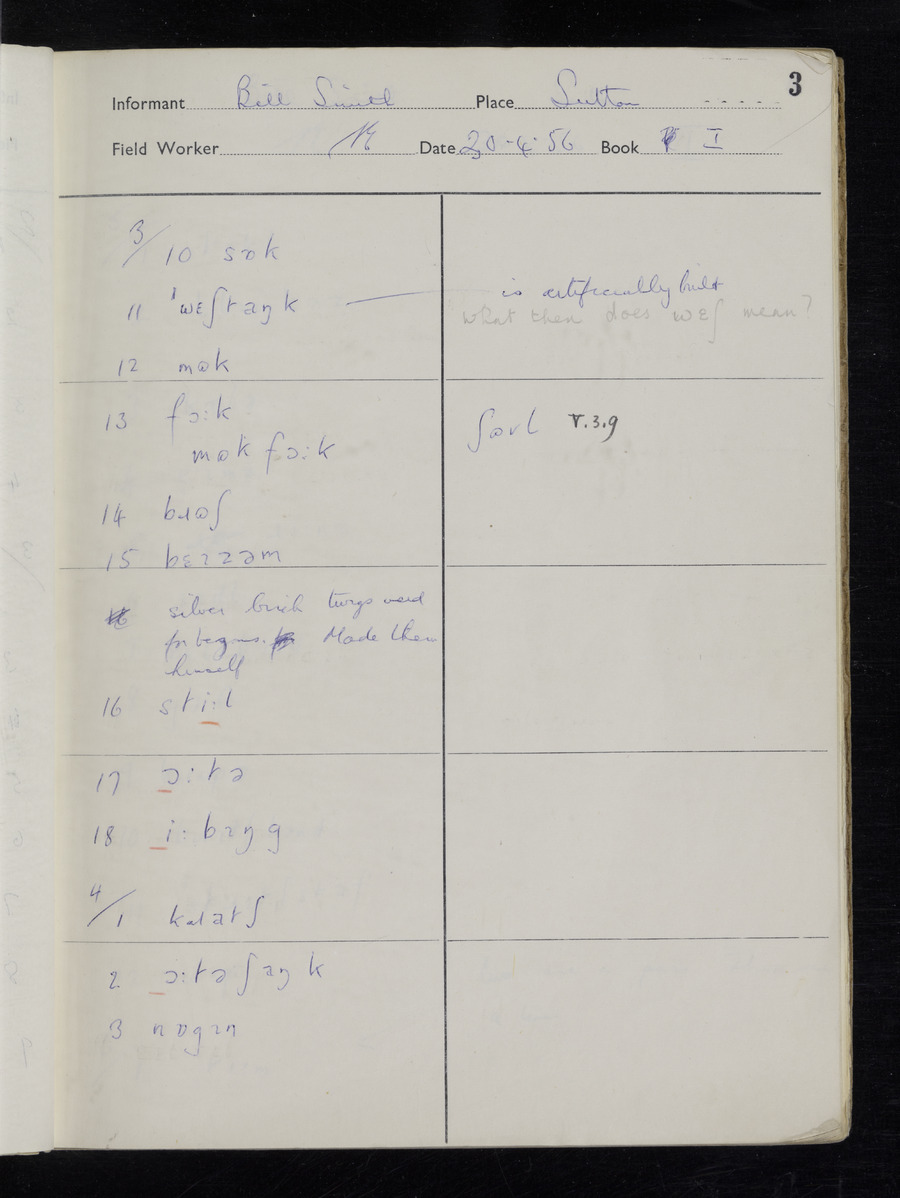 3
Informant Bill Smith Place Sutton
Field Worker Date 20-4-56 Book I
3/10 sɒk
11 ˈwɛʃtaŋk — is artificially built
what then does wɛʃ mean?
12 mɷk
13 fɔ:k ʃɷvl V.3.9
mɷk fɔ:k
14 bɹɷʃ
15 bɛzzəm
silver birch twigs used
for besoms. Made them
himself
16 sti:l
17 ɔ:tə
18 i:bɪŋg
4/1 kɹatʃ
2 ɔ:təʃaŋk
3 nɒgɪn